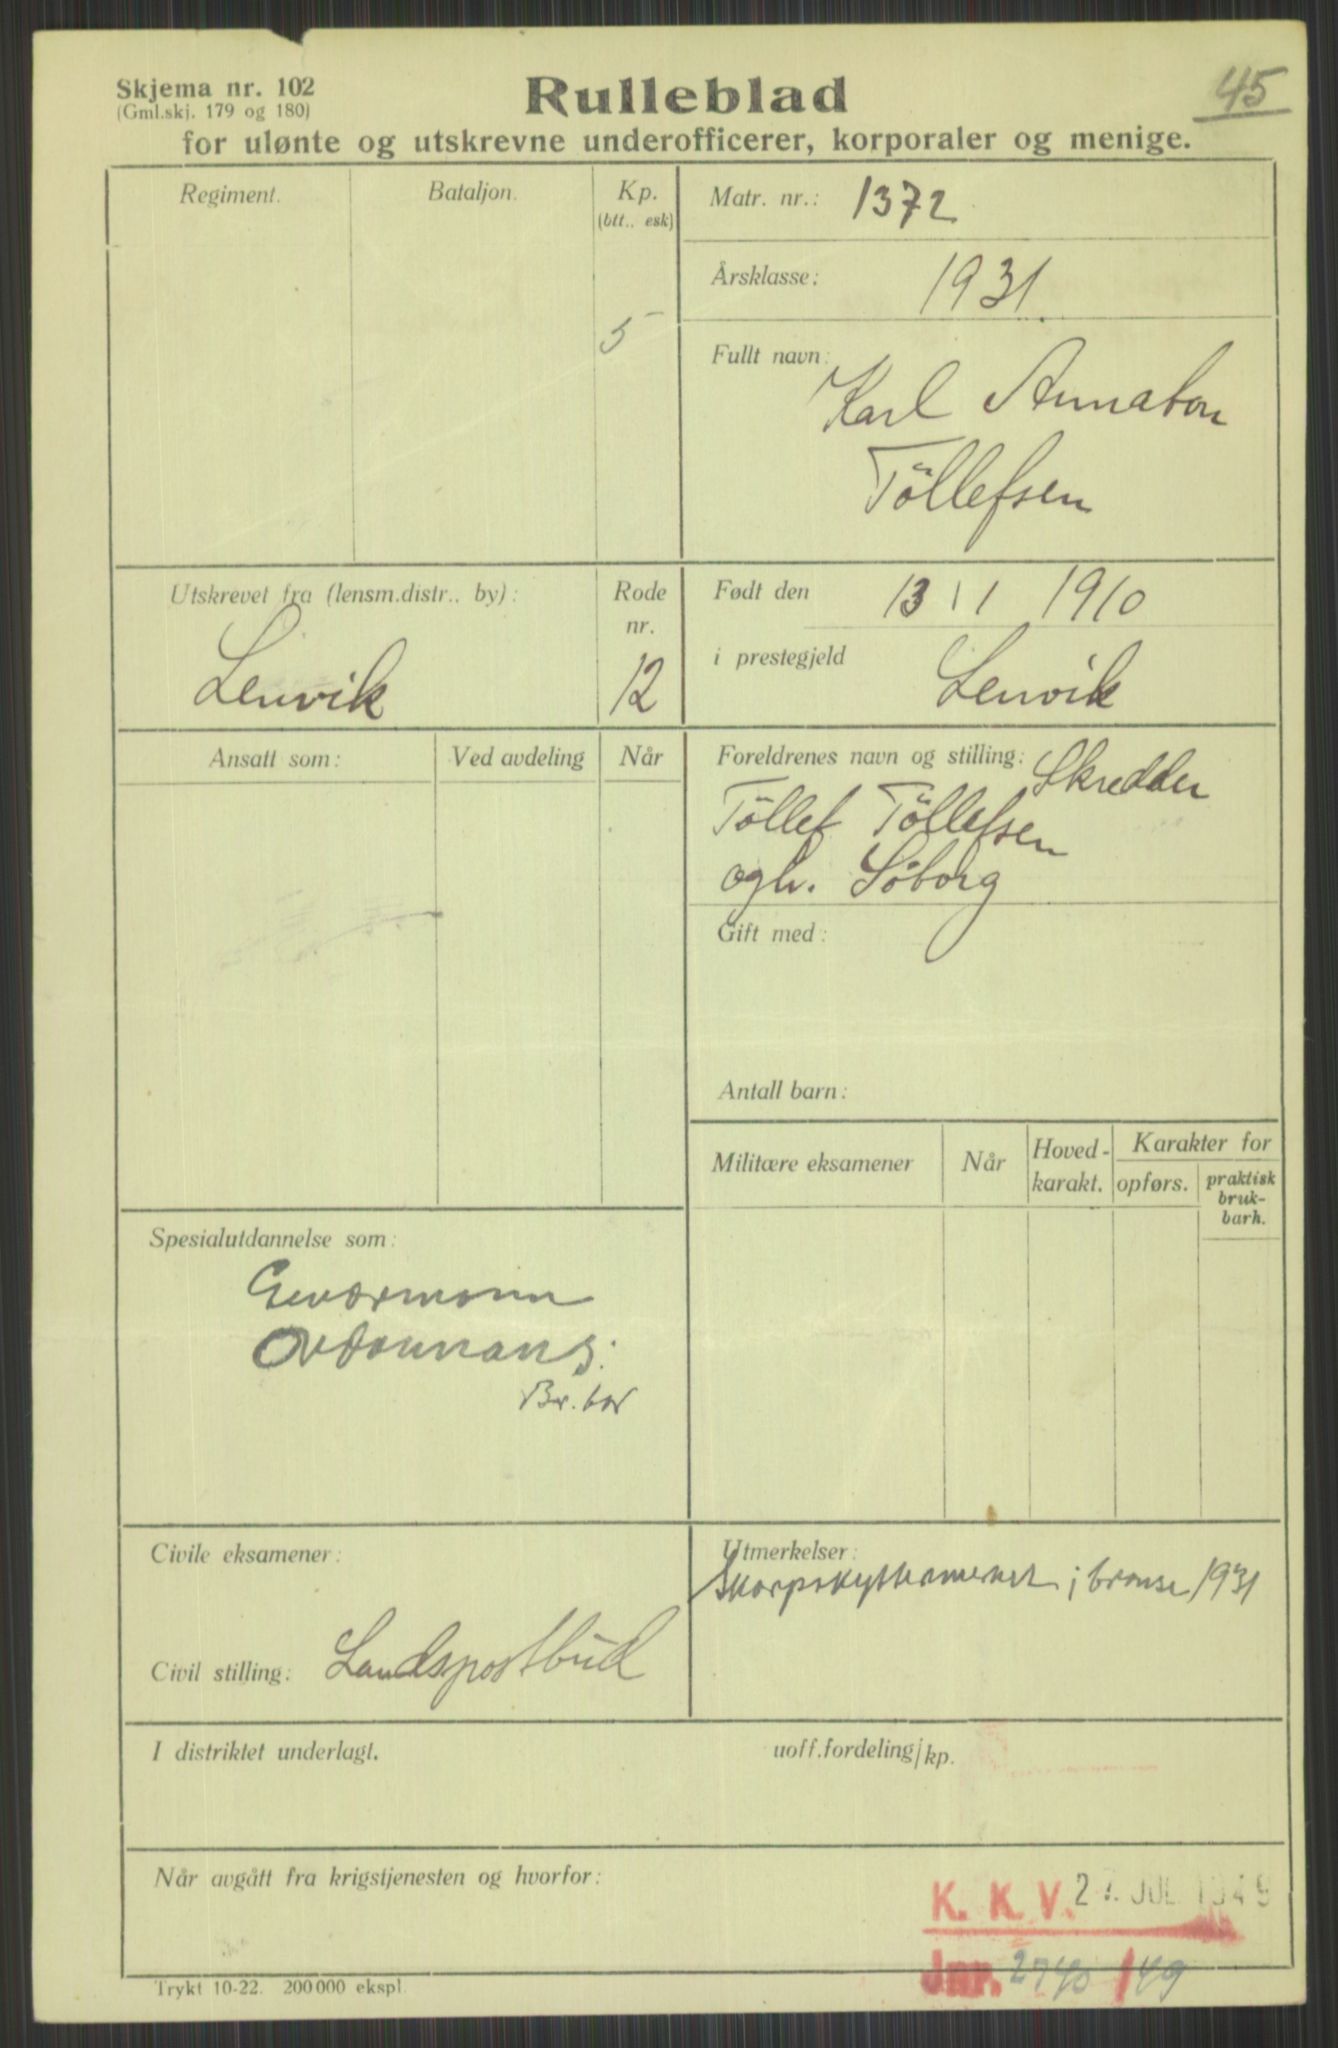 Skjema nr. 102
(Gml.skj. 179 og 180)
45
Rulleblad
for ulønte og utskrevne underofficerer, korporaler og menige.
Regiment.
Bataljon.
Kp.
(btt., esk)
5
Matr. nr.: 1372
Årsklasse: 1931
Fullt navn:
Karl
Töllefsen
Utskrevet fra (lensm.distr., by):
Lenvik
Rode
nr.
12
Født den 13 1 1910
i prestegjeld Lenvik
Ansatt som:
Ved avdeling
Når
Foreldrenes navn og stilling: Skredder
Töllef Töllefsen
og h. Söborg
Gift med:
Antall barn:
Militære eksamener
Når
Hoved-
karakt.
Karakter for
opførs.
praktisk
bruk-
barh.
Spesialutdannelse som:
Geværmann
Ordonnans.
Br. bar
Civile eksamener:
Civil stilling: Landspostbud
Utmerkelser:
Skarpskyttermerket i bronse 1931
I distriktet underlagt.
uoff.fordeling/kp.
Når avgått fra krigstjenesten og hvorfor:
K. K. V. 27. JUL 1949
Jnr. 2740 /49
Trykt 10-22. 200 000 ekspl.